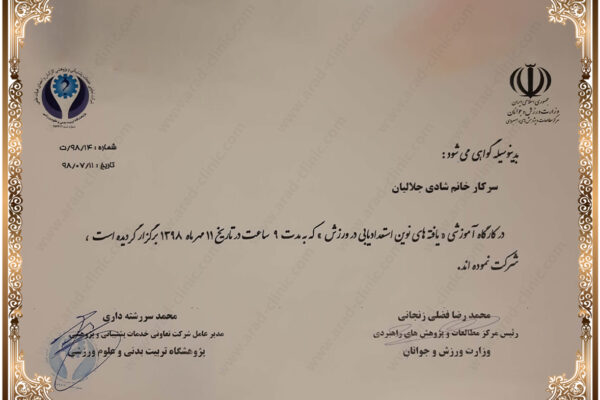 جمهوری اسلامی ایران
وزارت ورزش و جوانان
شماره : ۹۸/۱۴/ت
تاریخ : ۹۸/۰۷/۱۱
بدینوسیله گواهی می شود :
سرکار خانم شادی جلالیان
در کارگاه آموزشی « یافته های نوین استعدادیابی در ورزش » که به مدت ۹ ساعت در تاریخ ۱۱ مهرماه ۱۳۹۸ برگزار گردیده است ،
شرکت نموده اند.
محمد رضا فضلی زنجانی
رئیس مرکز مطالعات و پژوهش های راهبردی
وزارت ورزش و جوانان
محمد سررشته داری
مدیر عامل شرکت تعاونی خدمات پشتیبانی و پژوهشی
پژوهشگاه تربیت بدنی و علوم ورزشی
www.arad-clinic.com